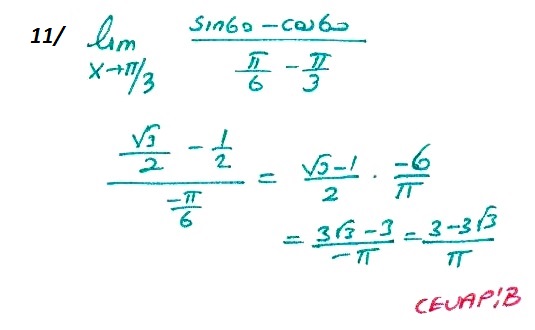 11/ lim x→π/3 (sin60 − cos60)/(π/6 − π/3)
(√3/2 − 1/2)/(−π/6) = (√3−1)/2 · −6/π
= (3√3−3)/−π = (3−3√3)/π
CEVAP:B